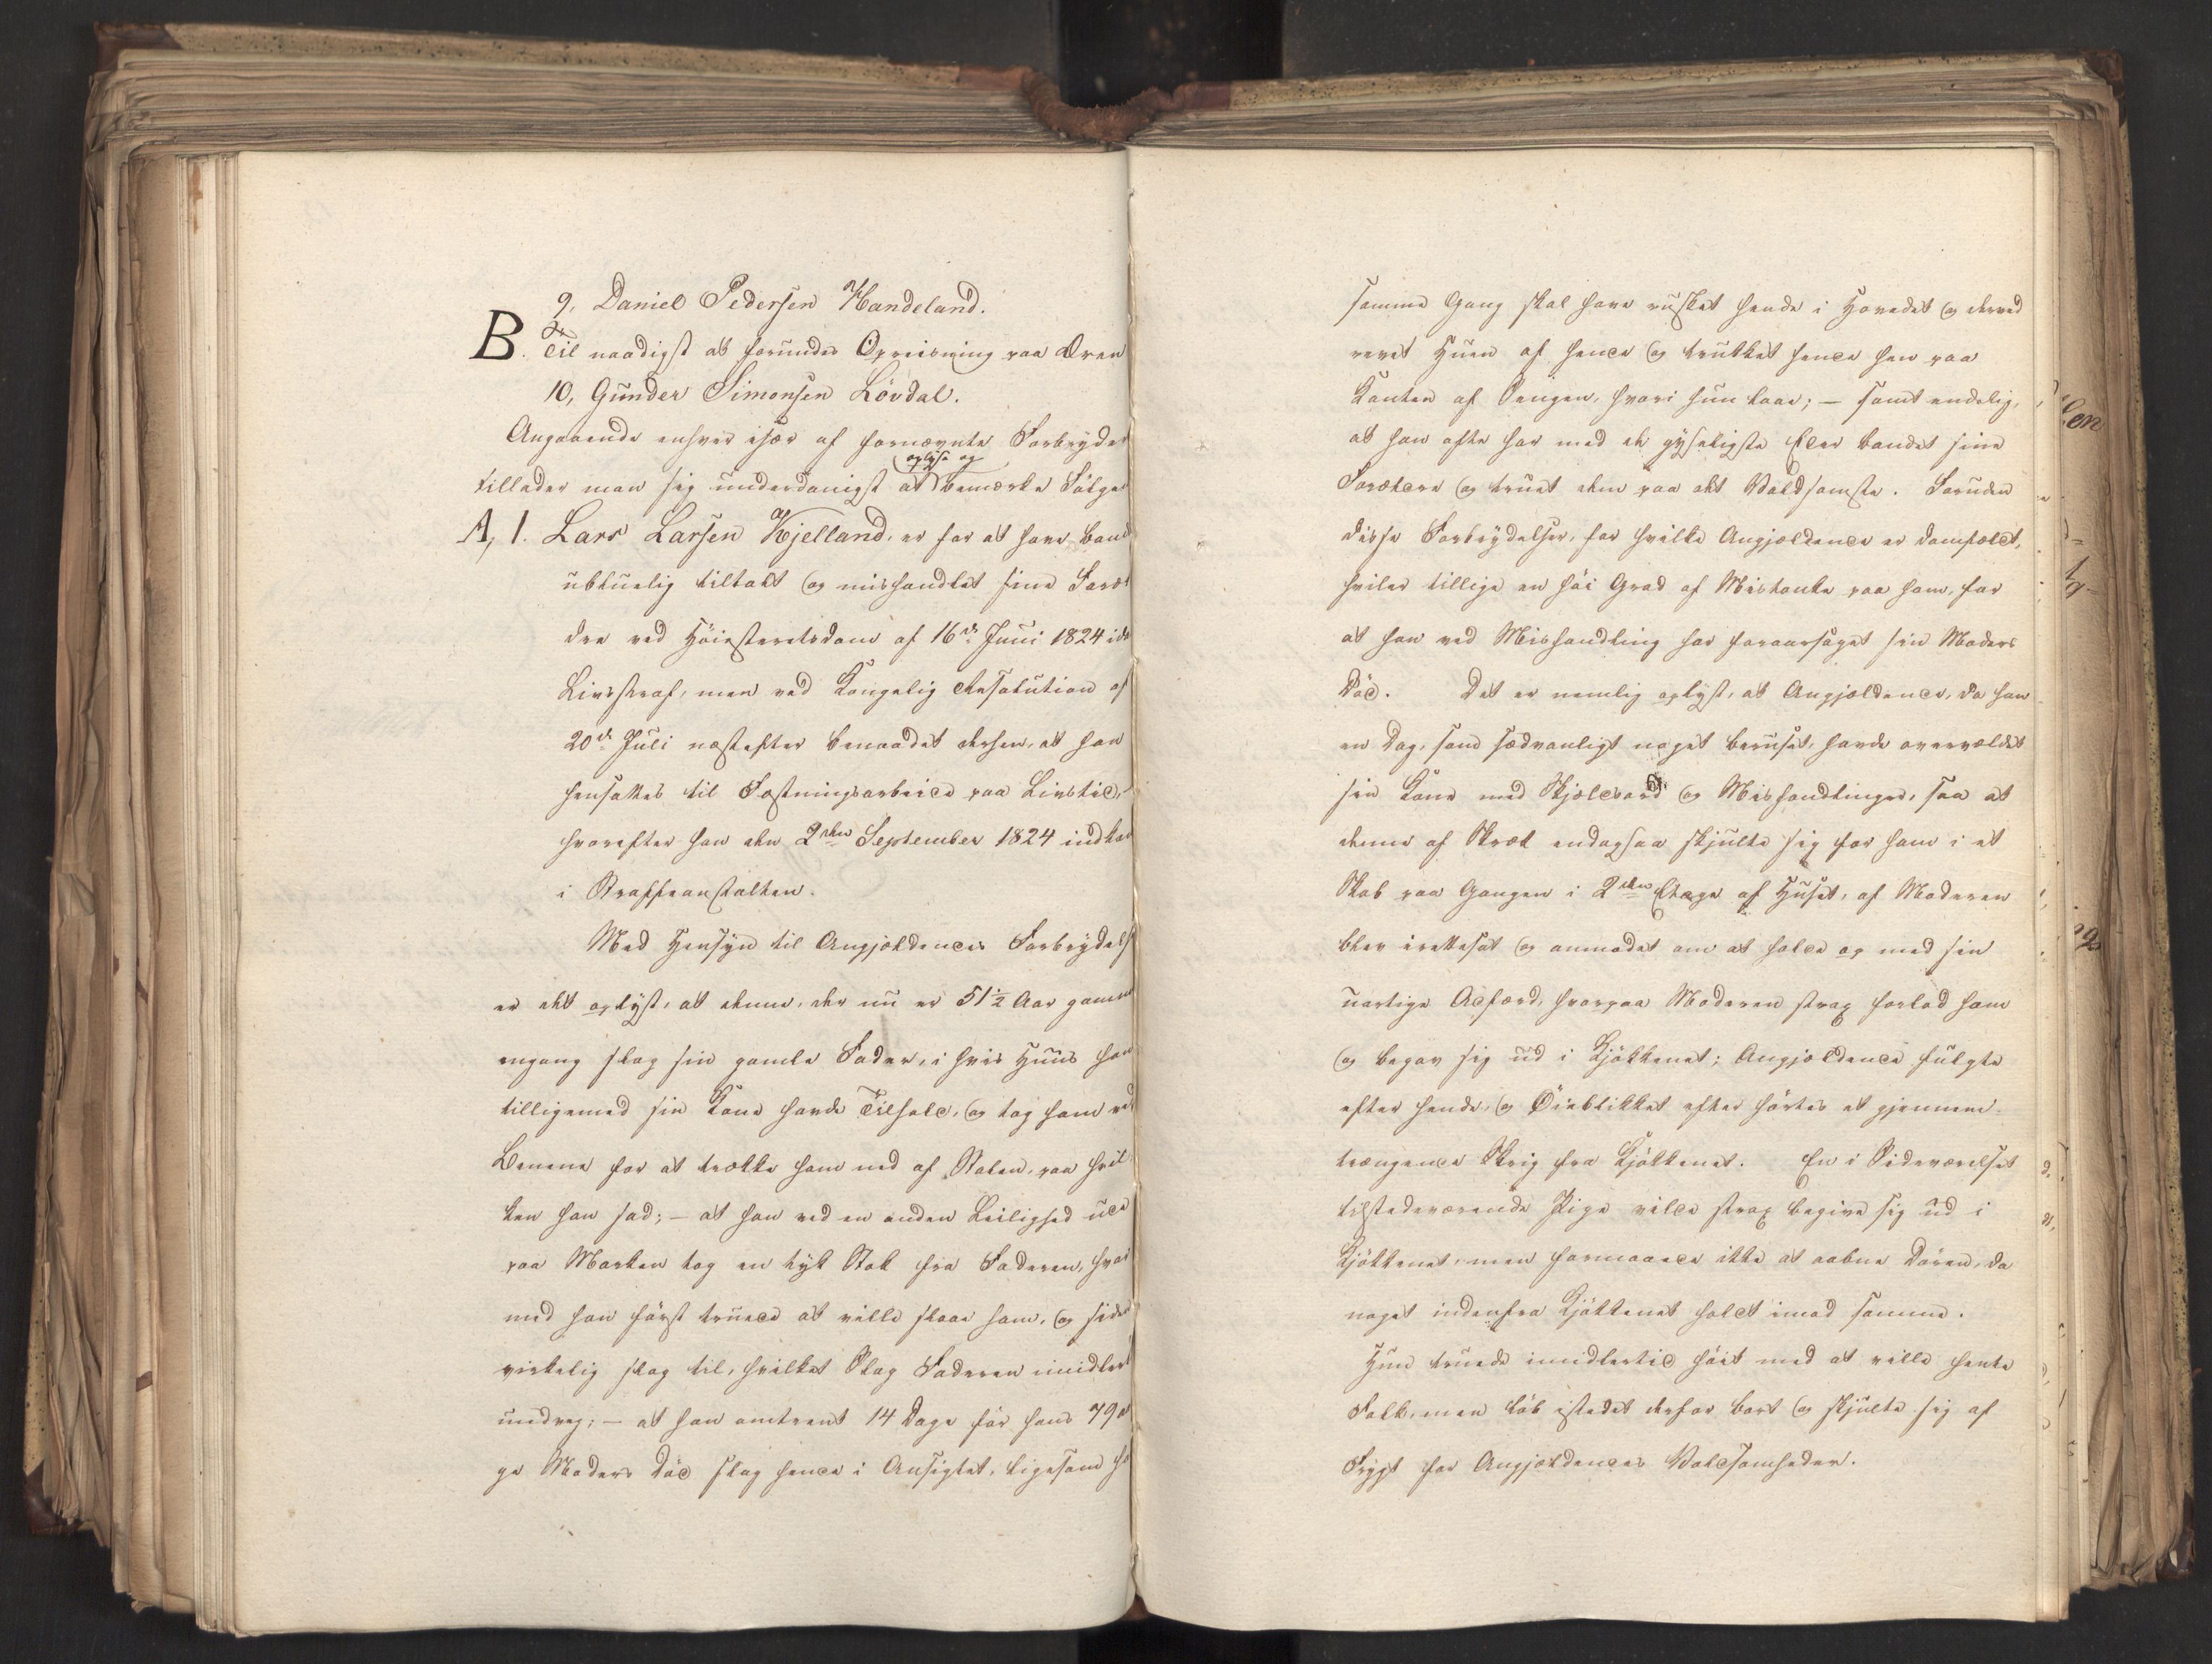 9, Daniel Pedersen Handeland.
B. Til naadigst at forundes Opreisning paa Æren
10, Gunder Simonsen Lövdal.
Angaaende enhver især af fornævnte Forbryder
oplyse og
tillader man sig underdanigst at bemærke Fölge
A, 1. Lars Larsen Kjelland, er for at have band
ubluelig tiltalt og mishandlet sine Foræl
dre ved Höiesteretsdom af 16de Juni 1824 id
Livsstraf, men ved Kongelig Resolution af
20de Juli næstefter benaadet derhen, at han
hensattes til Fæstningsarbeide paa Livstid,
hvorefter han den 2den September 1824 indkom
i Straffeanstalten.
Med Hensyn til Angjældendes Forbrydels
er det oplyst, at denne, der nu er 51½ Aar gamm
engang slog sin gamle Fader, i hvis Huus han
tilligemed sin Kone havde Tilhold, og tog ham ved
Benene for at trække ham ned af Stolen, paa hvil-
ken han sad; – at han ved en anden Leilighed ude
paa Marken tog en tyk Stok fra Faderen, hvor
med han först truede at ville slaae ham, og siden
virkelig slog til, hvilket Slag Faderen imidlert
undveg; – at han omtrent 14 Dage för hans 79 a
ge Moders Död slog hende i Ansigtet, ligesom h
samme Gang skal have rusket hende i Hovedet og derved
revet Huen af hende og trukket hende hen paa
Kanten af Sengen, hvori hun laae; – samt endelig,
at han ofte har med de gyseligste Eder bandet sine
Forældre og truet dem paa det Voldsomste. Foruden
disse Forbrydelser, for hvilke Angjældende er domfældt,
hviler tillige en höi Grad af Mistanke paa ham, for
at han ved Mishandling har foraarsaget sin Moders
Död. Det er nemlig oplyst, at Angjældende, da han
en Dag, som sædvanligt noget beruset, havde overvældet
sin Kone med Skjældsord og Mishandlinger, saa at
denne af Skræk endogsaa skjulte sig for ham i et
Skab paa Gangen i 2den Etage af Huset, af Moderen
blev irettesat og anmodet om at holde op med sin
uartige Adfærd, hvorpaa Moderen strax forlod ham
og begav sig ud i Kjökkenet; Angjældende fulgte
efter hende, og Öieblikket efter hörtes et gjennem-
trængende Skrig fra Kjökkenet. En i Sideværelset
tilstedeværende Pige vilde strax begive sig ud i
Kjökkenet, men formaaede ikke at aabne Dören, da
noget indenfra Kjökkenet holdt imod samme.
Hun truede imidlertid höit med at ville hente
Folk, men löb istedet derfor bort og skjulte sig af
Frygt for Angjældendes Voldsomheder.